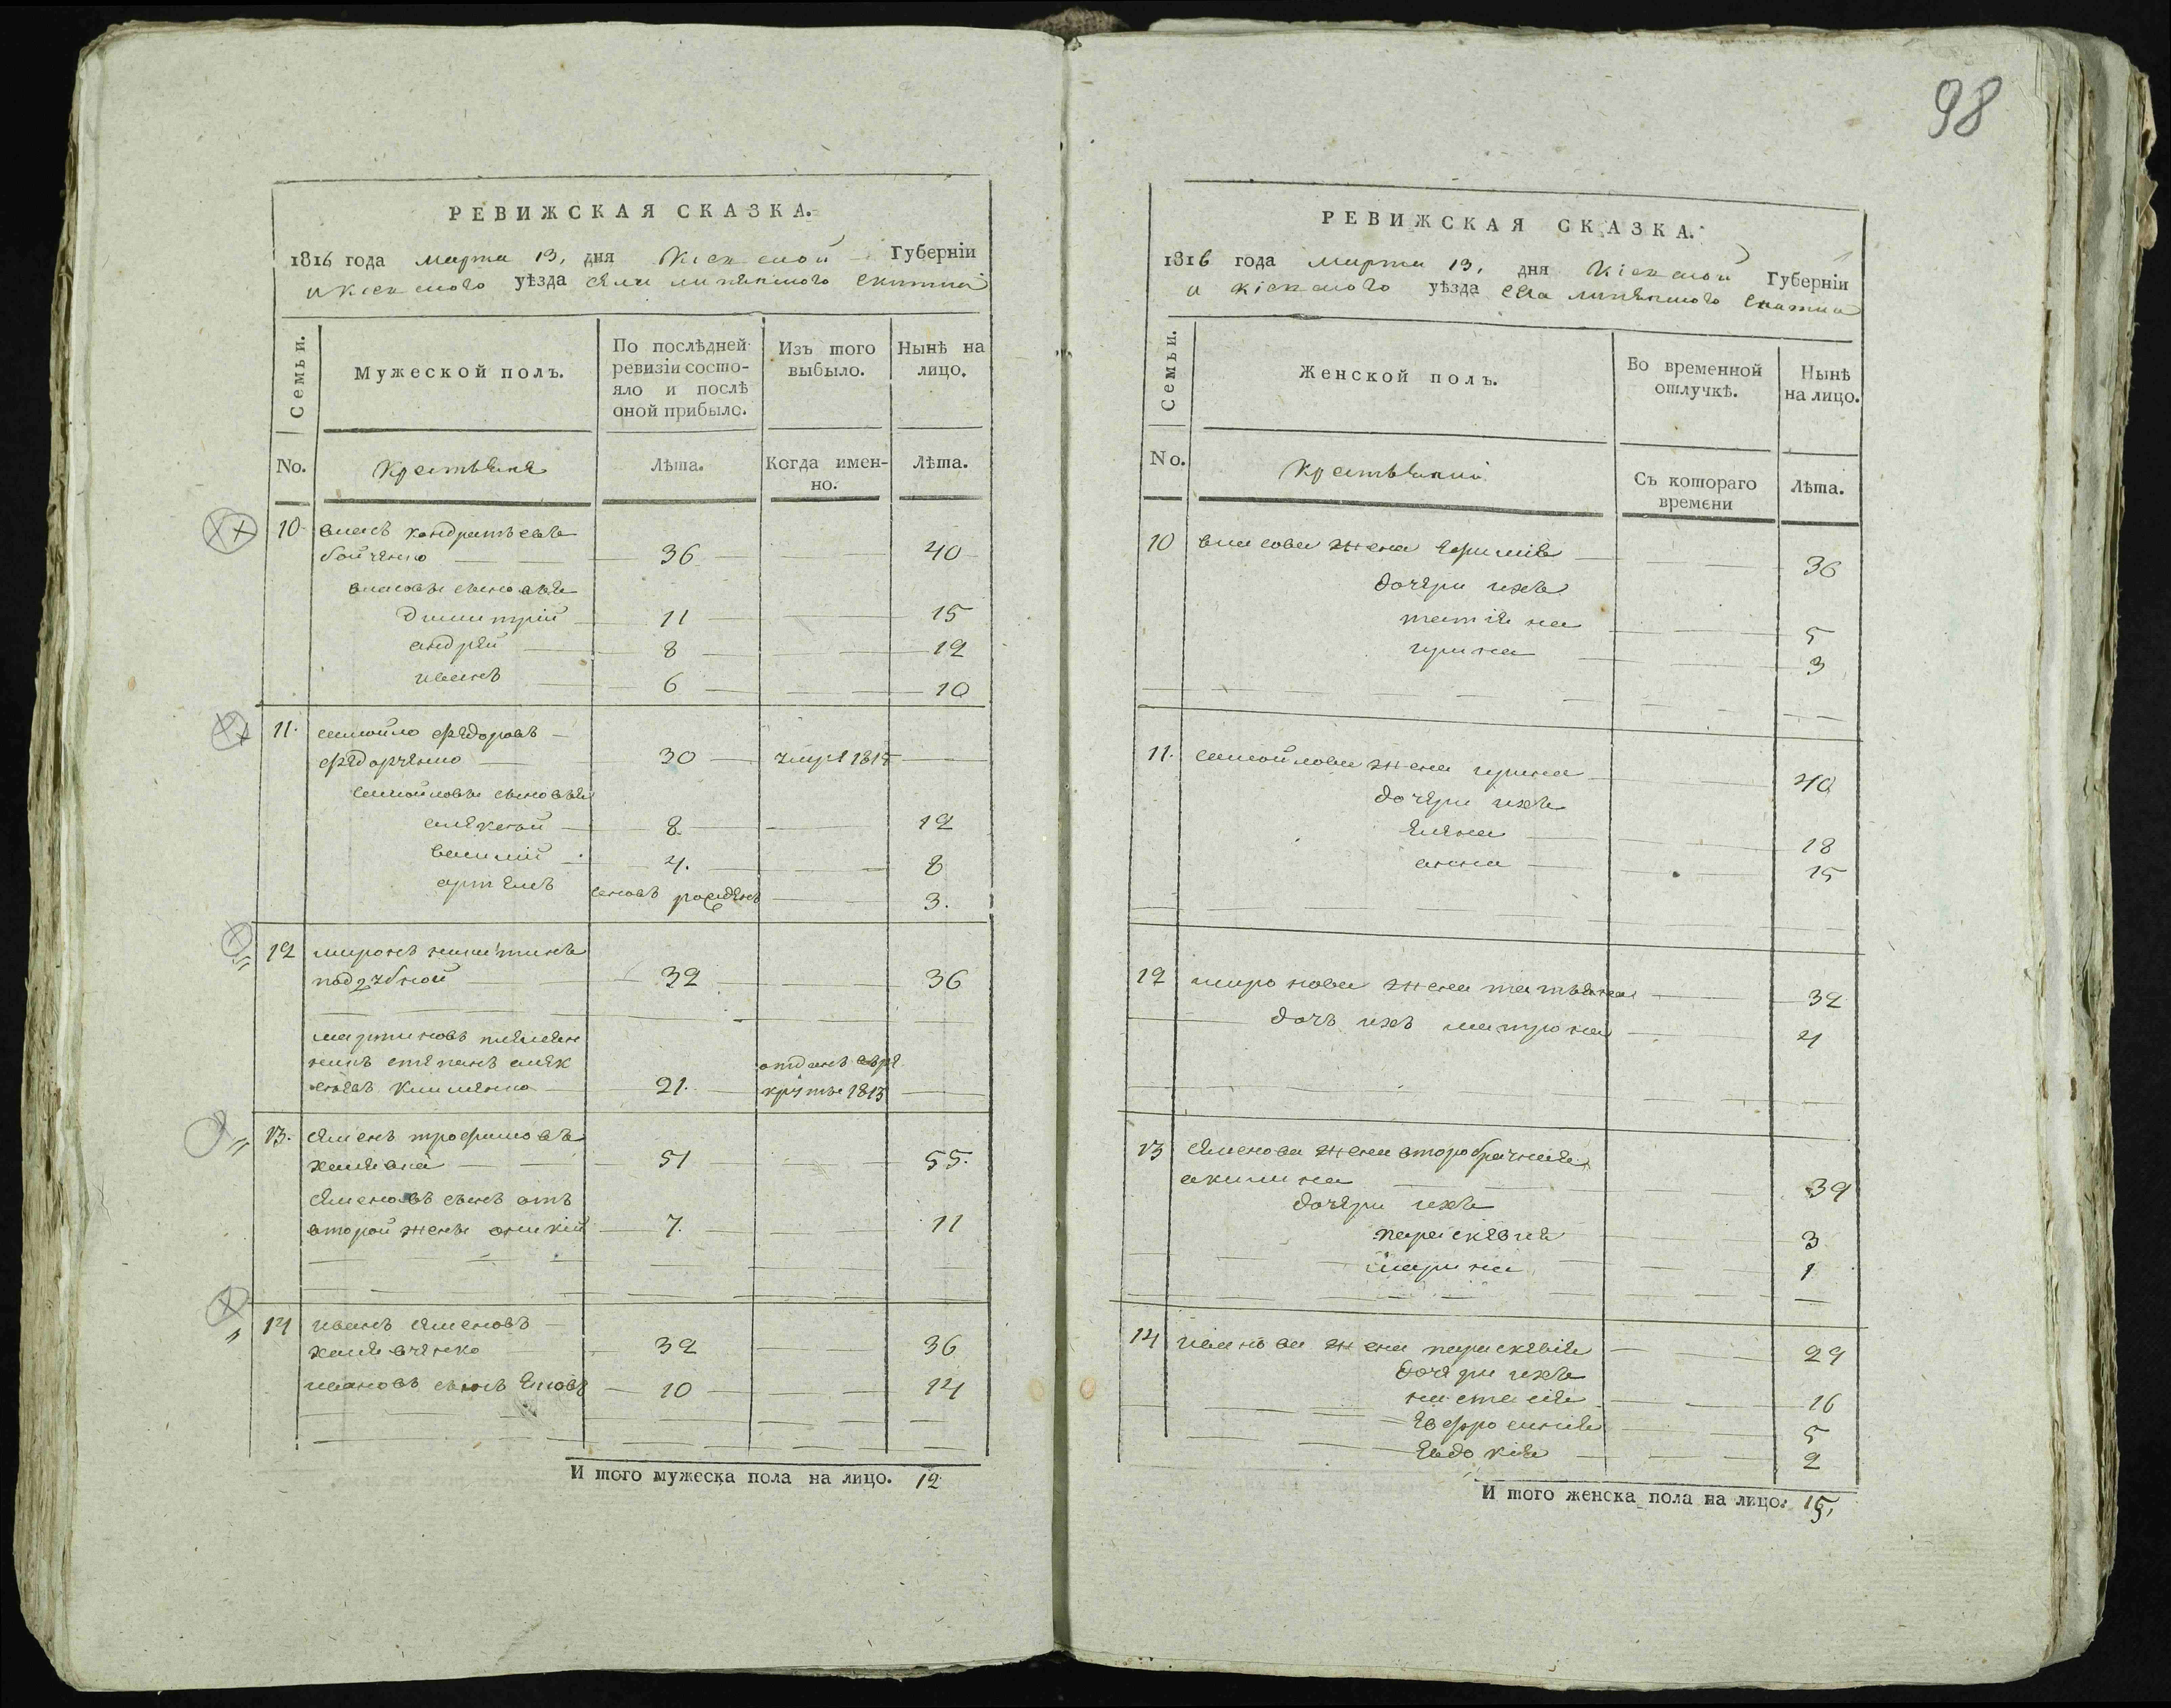 98
РЕВИЖСКАЯ СКАЗКА.
1816 года марта 13, дня Кіевской Губерніи
и кіевского уѣзда села липянского скитка
Семьи.
Мужеской полъ.
По послѣдней ревизіи состояло и послѣ оной прибыло.
Изъ того выбыло.
Нынѣ на лицо.
No.
Крестьяне
Лѣта.
Когда именно.
Лѣта.
10 власъ кондратьевъ
бойченко 36 40
власовы сыновья
димитрій 11 15
андрей 8 12
иванъ 6 10
11. самойло федоровъ
федорченко 30 умре 1815
самойловы сыновья
алексѣй 8 12
василій 4. 8
артемъ вновь рожденъ 3.
12 миронъ никитинъ
поддубной 32 36
мартиновъ племян
никъ степанъ алек
сѣевъ клименко 21. отданъ въ ре
круты 1813
13. семенъ трофимовъ
халява 51 55.
семеновъ сынъ отъ
второй жены оникій 7. 11
14 иванъ семеновъ
халявченко 32 36
ивановъ сынъ 10 14
И того мужеска пола на лицо. 12
РЕВИЖСКАЯ СКАЗКА.
1816 года марта 13, дня Кіевской Губерніи
и кіевского уѣзда села липянского скитка
Семьи.
Женской полъ.
Во временной отлучкѣ.
Нынѣ на лицо.
No.
Крестьянки
Съ котораго времени
Лѣта.
10 власова жена 36
дочери ихъ
татіяна 5
ирина 3
11. самойлова жена ирина 40
дочери ихъ
елена 18
анна 15
12 миронова жена татьяна 32
дочь ихъ матрона 4
13 семенова жена второбрачная
акилина 39
дочери ихъ
параскевія 3
марина 1
14 иванова жена параскевія 29
дочери ихъ
настасія 16
евфросинія 5
евдокія 2
И того женска пола на лицо: 15,